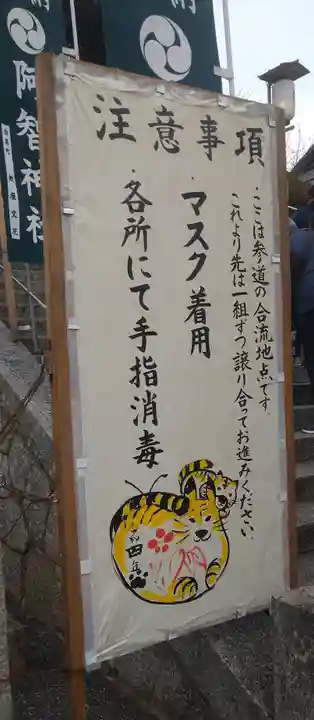 注意事項
・ここは参道の合流地点です。
これより先は一組ずつ譲り合ってお進みください。
・マスク着用
・各所にて手指消毒
四年
阿智神社